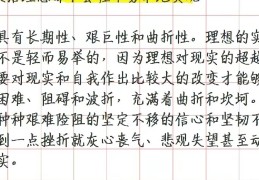 具有长期性、艰巨性和曲折性。理想的实
不是轻而易举的，因为理想对现实的超越
要对现实和自我作出比较大的改变才能够
困难、阻碍和波折，充满着曲折和坎坷。
种种艰难险阻的坚定不移的信心和坚韧不
到一点挫折就灰心丧气、悲观失望甚至动
实。